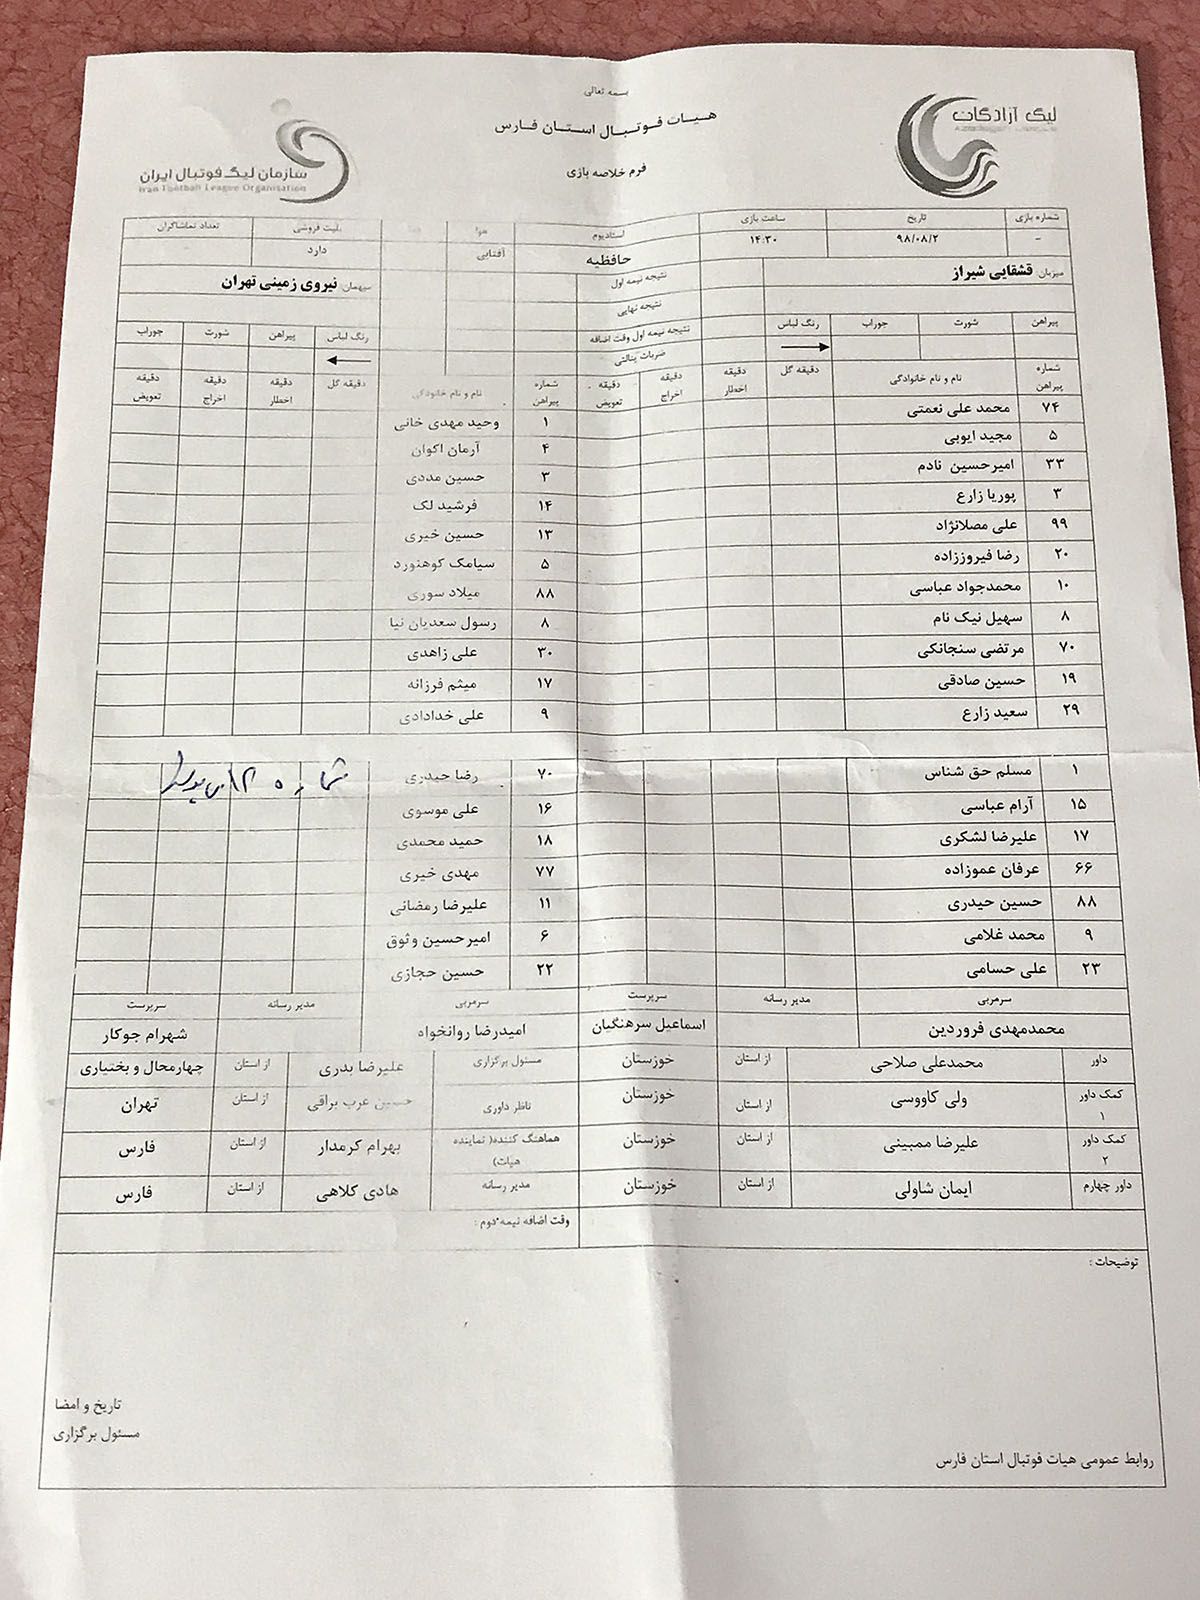 بسمه تعالی
هیات فوتبال استان فارس
فرم خلاصه بازی
لیگ آزادگان
سازمان لیگ فوتبال ایران
Iran Football League Organisation
شماره بازی تاریخ ساعت بازی استادیوم هوا بلیت فروشی تعداد تماشاگران
- ۹۸/۰۸/۲ ۱۴:۳۰ حافظیه آفتابی دارد
میزبان: قشقایی شیراز نتیجه نیمه اول میهمان: نیروی زمینی تهران
نتیجه نهایی
پیراهن شورت جوراب رنگ لباس نتیجه نیمه اول وقت اضافه رنگ لباس پیراهن شورت جوراب
ضربات پنالتی
شماره پیراهن نام و نام خانوادگی دقیقه گل دقیقه اخطار دقیقه اخراج دقیقه تعویض شماره پیراهن نام و نام خانوادگی دقیقه گل دقیقه اخطار دقیقه اخراج دقیقه تعویض
۷۴ محمد علی نعمتی ۱ وحید مهدی خانی
۵ مجید ایوبی ۴ آرمان اکوان
۳۳ امیرحسین نادم ۳ حسین مددی
۳ پوریا زارع ۱۴ فرشید لک
۹۹ علی مصلانژاد ۱۳ حسین خیری
۲۰ رضا فیروززاده ۵ سیامک کوهنورد
۱۰ محمدجواد عباسی ۸۸ میلاد سوری
۸ سهیل نیک نام ۸ رسول سعدیان نیا
۷۰ مرتضی سنجانکی ۳۰ علی زاهدی
۱۹ حسین صادقی ۱۷ میثم فرزانه
۲۹ سعید زارع ۹ علی خدادادی
۱ مسلم حق شناس ۷۰ رضا حیدری شماره ۱۲
۱۵ آرام عباسی ۱۶ علی موسوی
۱۷ علیرضا لشکری ۱۸ حمید محمدی
۶۶ عرفان عموزاده ۷۷ مهدی خیری
۸۸ حسین حیدری ۱۱ علیرضا رمضانی
۹ محمد غلامی ۶ امیرحسین وثوق
۲۳ علی حسامی ۲۲ حسین حجازی
سرمربی مدیر رسانه سرپرست سرمربی مدیر رسانه سرپرست
محمدمهدی فروردین اسماعیل سرهنگیان امیدرضا روانخواه شهرام جوکار
داور محمدعلی صلاحی از استان خوزستان مسئول برگزاری علیرضا بدری از استان چهارمحال و بختیاری
کمک داور ۱ ولی کاووسی از استان خوزستان ناظر داوری حسین عرب براقی از استان تهران
کمک داور ۲ علیرضا ممبینی از استان خوزستان هماهنگ کننده( نماینده هیات) بهرام کرمدار از استان فارس
داور چهارم ایمان شاولی از استان خوزستان مدیر رسانه هادی کلاهی از استان فارس
وقت اضافه نیمه دوم :
توضیحات :
تاریخ و امضا
مسئول برگزاری
روابط عمومی هیات فوتبال استان فارس